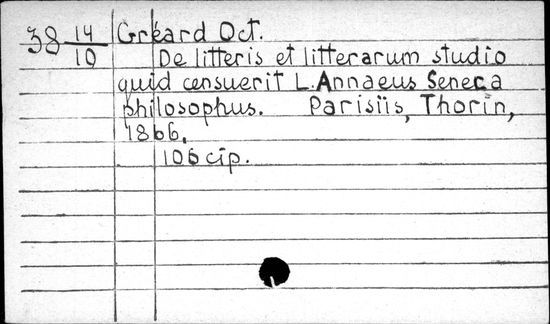 38 14/10 Gréard Oct.
De litteris et litterarum studio
quid censuerit L. Annaeus Seneca
philosophus. Parisiis, Thorin,
1866.
106 с́тр.